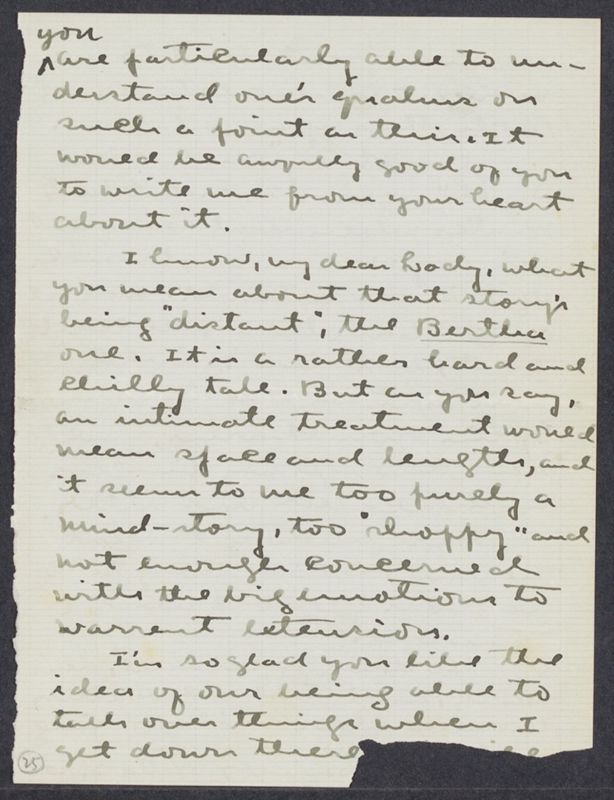 you
^are particularly able to un-
derstand one's qualms on
such a point as this. It
would be awfully good of you
to write me from your heart
about it.
I know, my dear lady, what
you mean about that story's
being "distant", the Bertha
one. It is a rather hard and
chilly tale. But as you say,
an intimate treatment would
mean space and lengths, and
it seems to me too purely a
mind-story, too "shoppy" and
not enough concerned
with the big emotions to
warrent extension.
I'm so glad you like the
idea of our being able to
talk over things when I
get down there
25